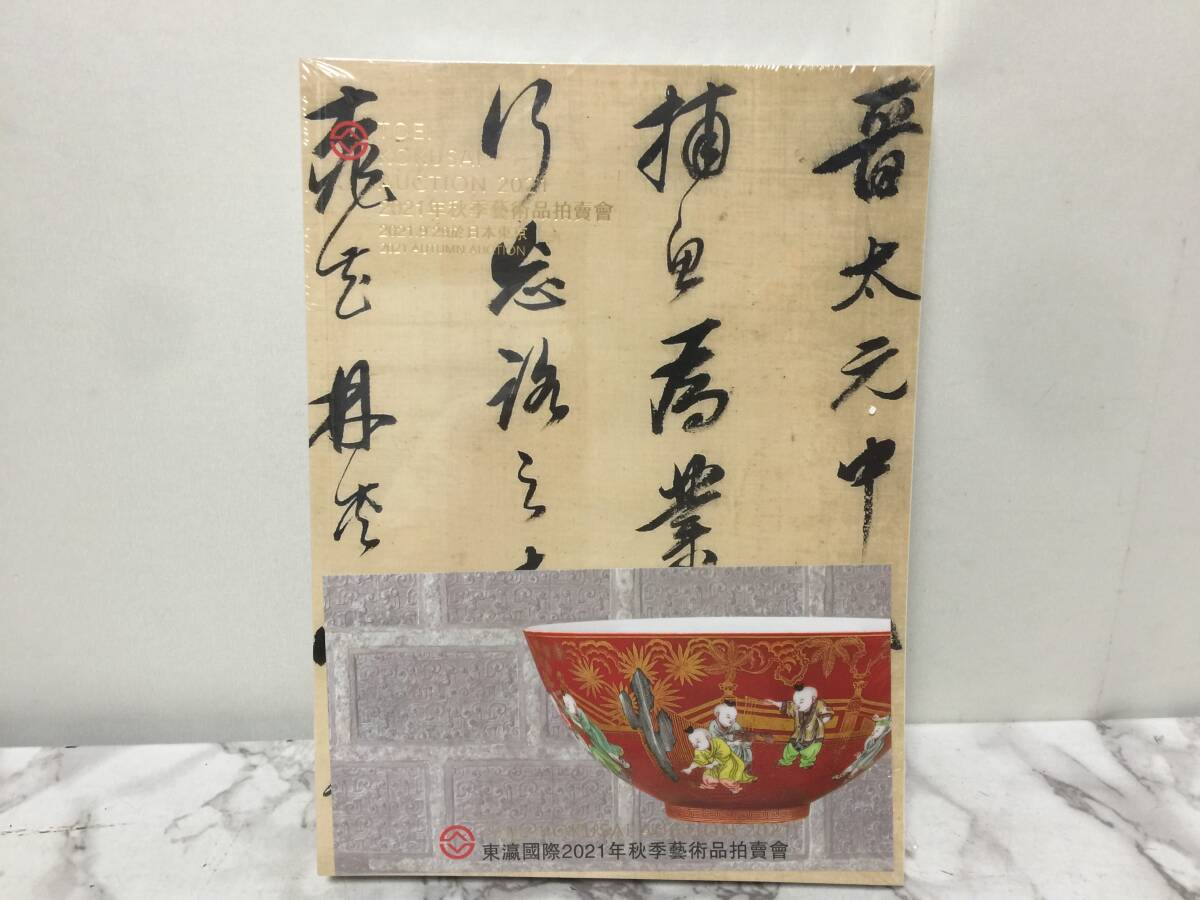 晉太元中
捕魚為業
行忘路之
桃花林夾
TOEI
KOKUSAI
AUCTION 2021
2021年秋季藝術品拍賣會
2021.9.28於日本東京
2021 AUTUMN AUCTION
KOKUSAI AUCTION 2021
東瀛國際2021年秋季藝術品拍賣會